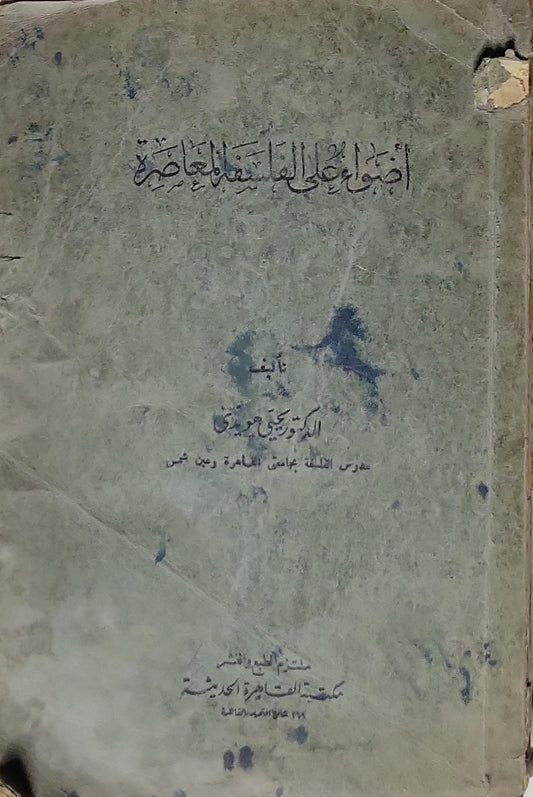 أضواء على الفلسفة المعاصرة
تأليف
الدكتور يحيى هويدى
مدرس الفلسفة بجامعتى القاهرة وعين شمس
ملتزم الطبع والنشر
مكتبة القاهرة الحديثة
شارع